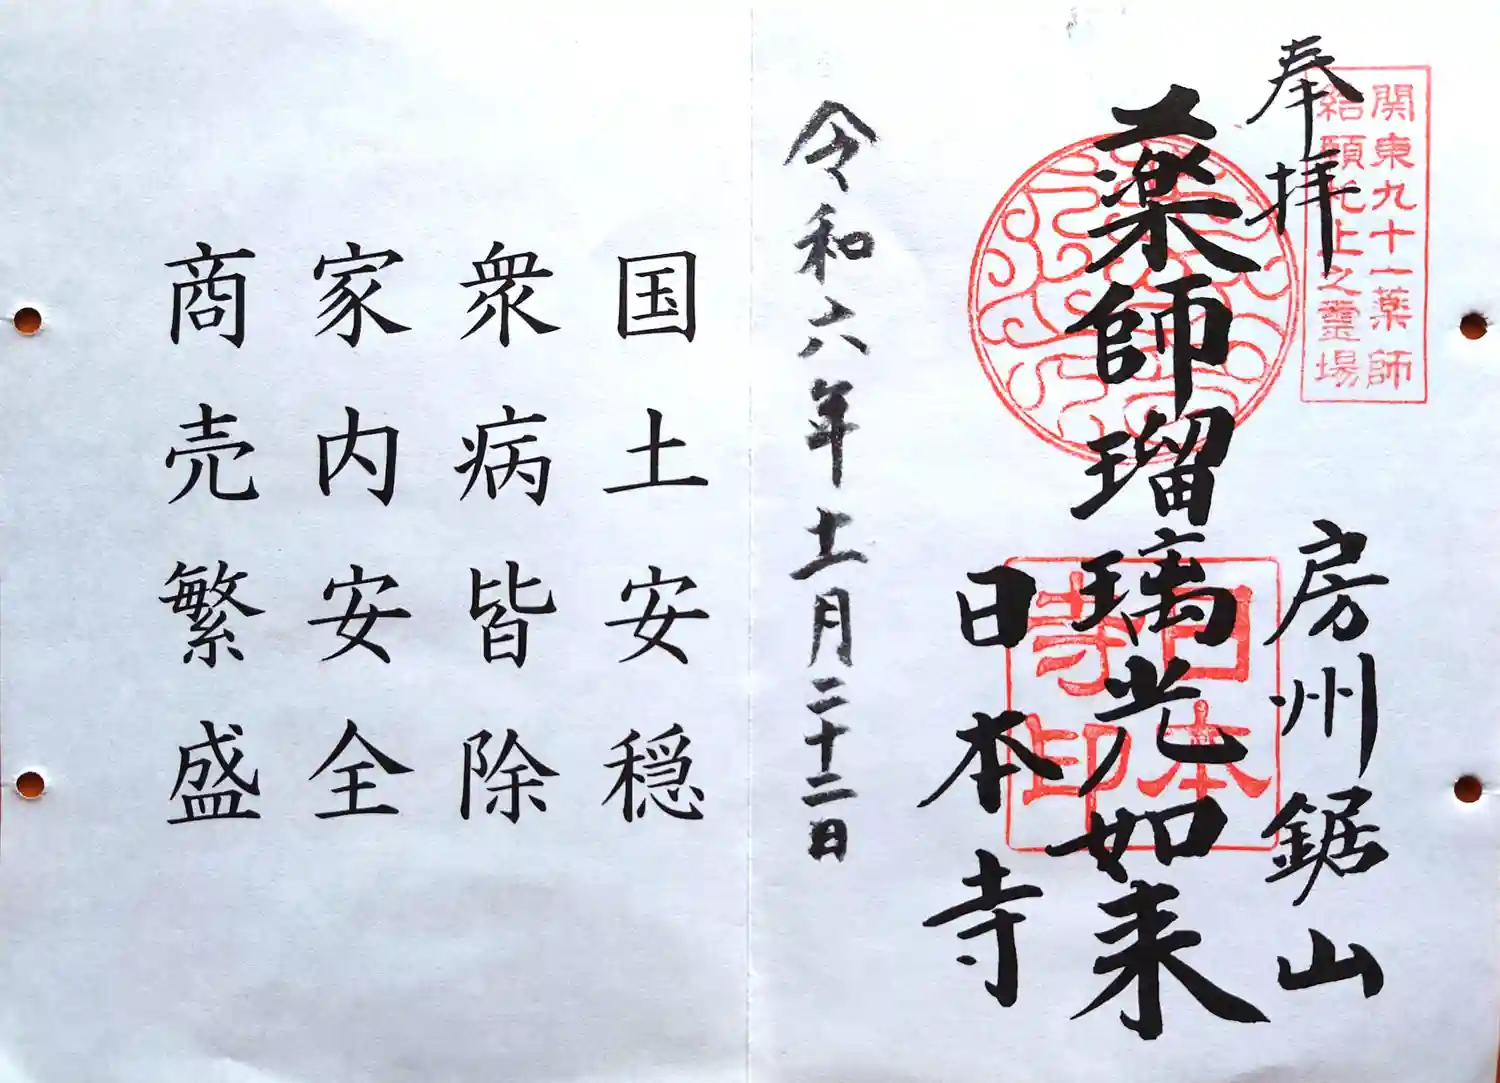 関東九十一薬師
結願札止之霊場
奉拝
房州鋸山
薬師瑠璃光如来
日本寺
日本
寺印
令和六年十一月二十二日
国土安穏
衆病皆除
家内安全
商売繁盛